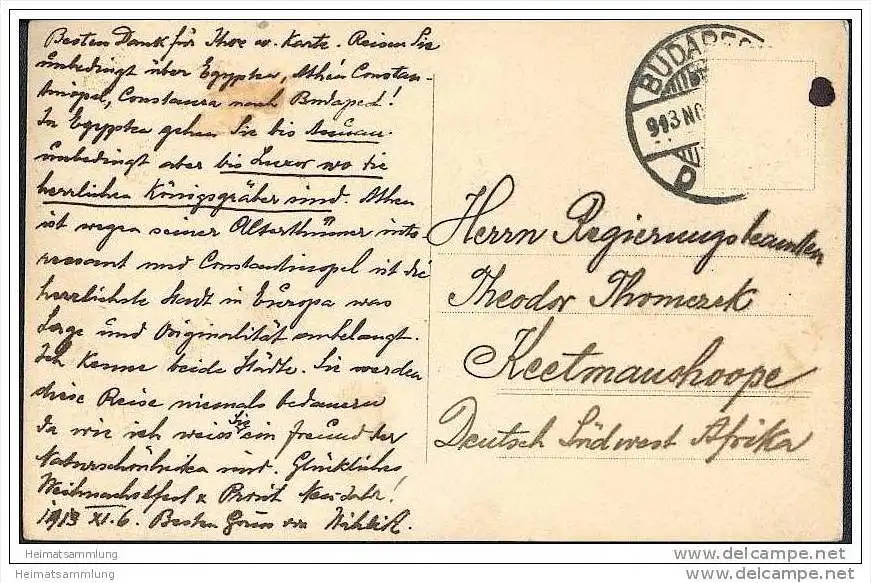 Besten Dank für Ihre w. Karte. Reisen Sie
unbedingt über Egypten, Athen Constan-
tinopel, Constanza nach Budapest!
In Egypten gehen Sie bis Assuan
unbedingt aber bis Luxor wo die
herrlichen Königsgräber sind. Athen
ist wegen seiner Alterthümer inte
ressant und Constantinopel ist die
herrlichste Stadt in Europa was
Lage und Originalität anbelangt.
Ich kenne beide Städte. Sie werden
diese Reise niemals bedauern
da wie ich weiss Sie ein Freund der
Naturschönheiten sind. Glückliches
Weihnachtsfest & Prosit Neujahr!
1913 XI. 6. Besten Gruss von
BUDAPES
913 NO
Herrn Regierungsbeamten
Theodor Thomczek
Keetmanshoope
Deutsch Südwest Afrika
Heimatsammlung
Heimatsammlung
delcampe.net
delcampe.net